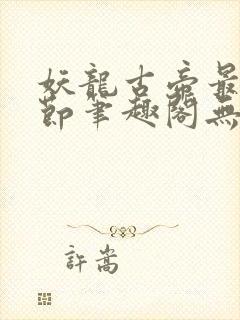 妖龍古帝最
節筆趣閣無
許嵩